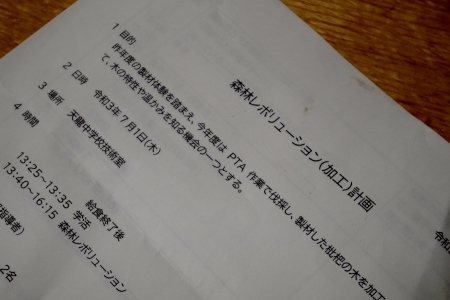 令和
森林レボリューション(加工)計画
1 目的
昨年度の製材体験を踏まえ、今年度は PTA 作業で伐採し、製材した枇杷の木を加工
て、木の特性や温かみを知る機会の一つとする。
2 日時 令和3年7月1日(木)
3 場所 天龍中学校技術室
4 時間 給食終了後
13:25~13:35 学活
13:40~16:15 森林レボリューション
指導者)
2名